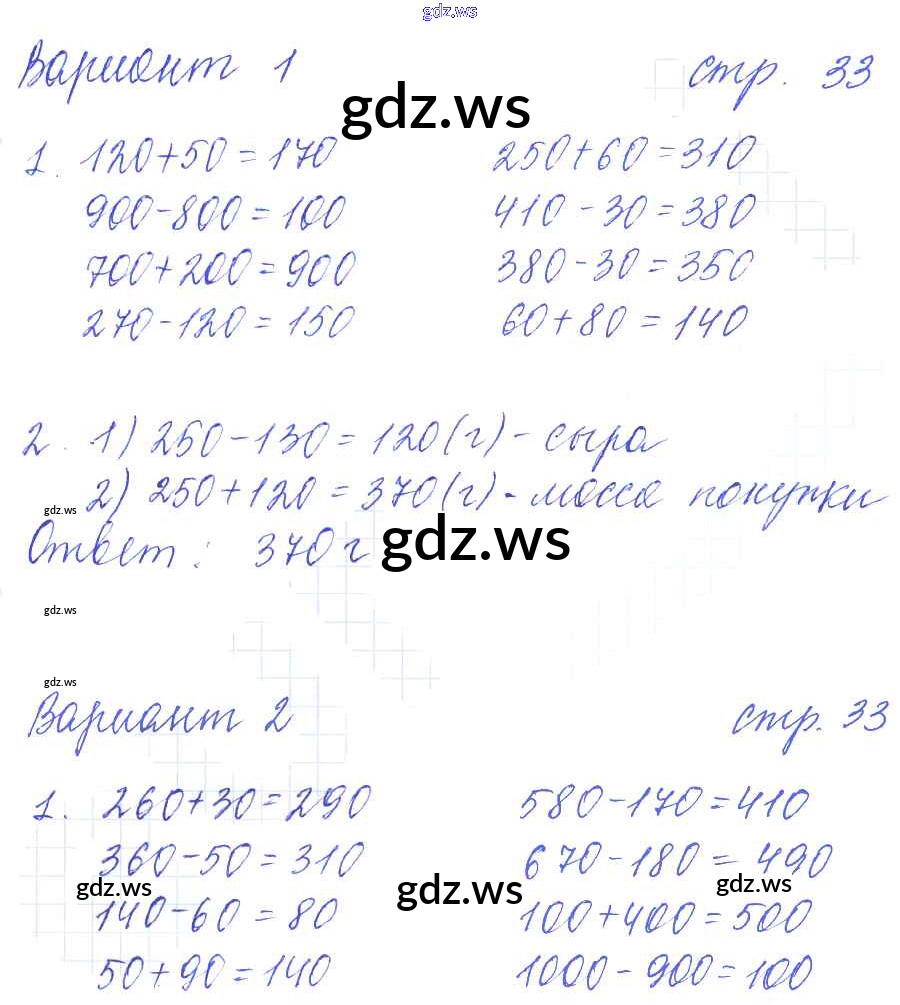 gdz.ws
Вариант 1 стр. 33
gdz.ws
1. 120+50=170 250+60=310
900-800=100 410-30=380
700+200=900 380-30=350
270-120=150 60+80=140
2. 1) 250-130=120(г)- сыра
2) 250+120=370(г)- масса покупки
gdz.ws
Ответ: 370 г
gdz.ws
gdz.ws
gdz.ws
Вариант 2 стр. 33
1. 260+30=290 580-170=410
360-50=310 670-180=490
gdz.ws gdz.ws gdz.ws
140-60=80 100+400=500
50+90=140 1000-900=100